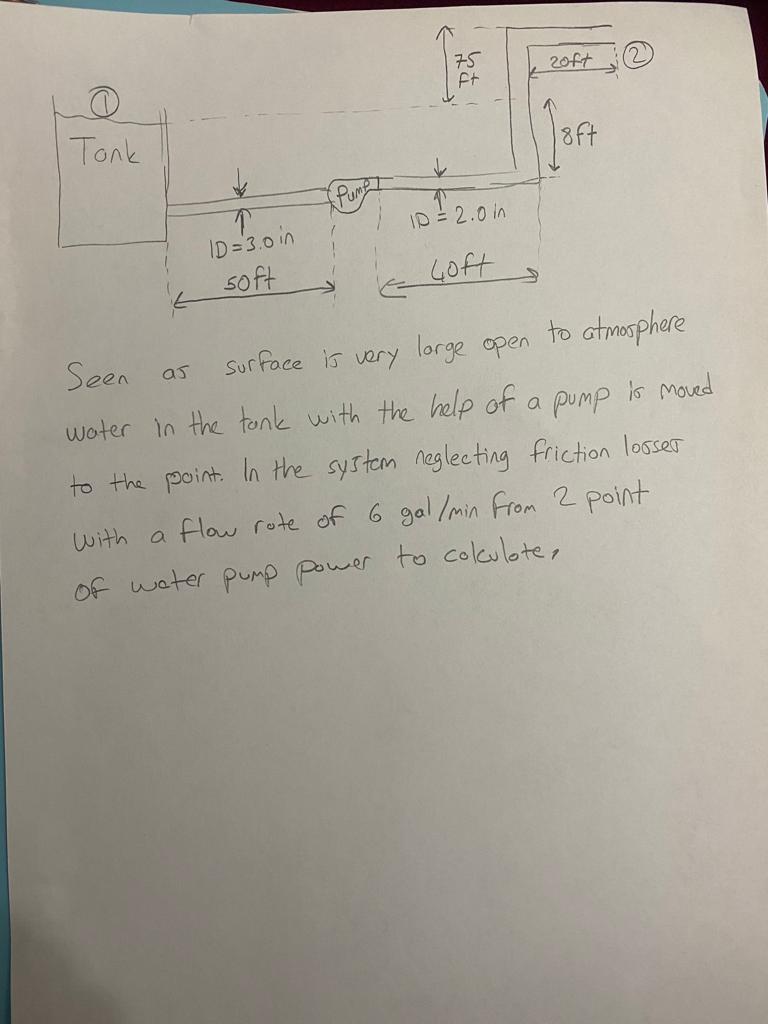 ①
75
ft
20ft
②
Tank
8ft
Pump
ID=3.0 in
ID=2.0 in
50ft
40ft
Seen as surface is very large open to atmosphere
water in the tank with the help of a pump is moved
to the point. In the system neglecting friction losses
with a flow rate of 6 gal/min from 2 point
of water pump power to calculate,